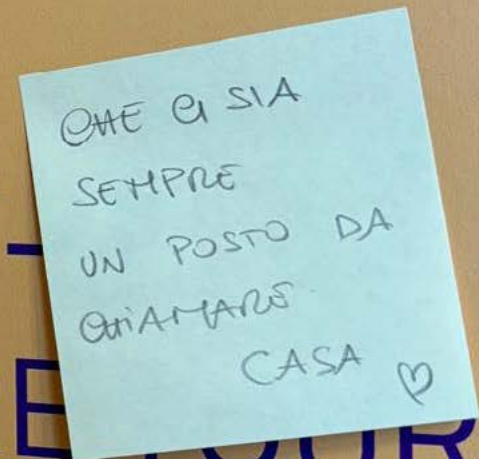 CHE CI SIA
SEMPRE
UN POSTO DA
CHIAMARE
CASA ♡